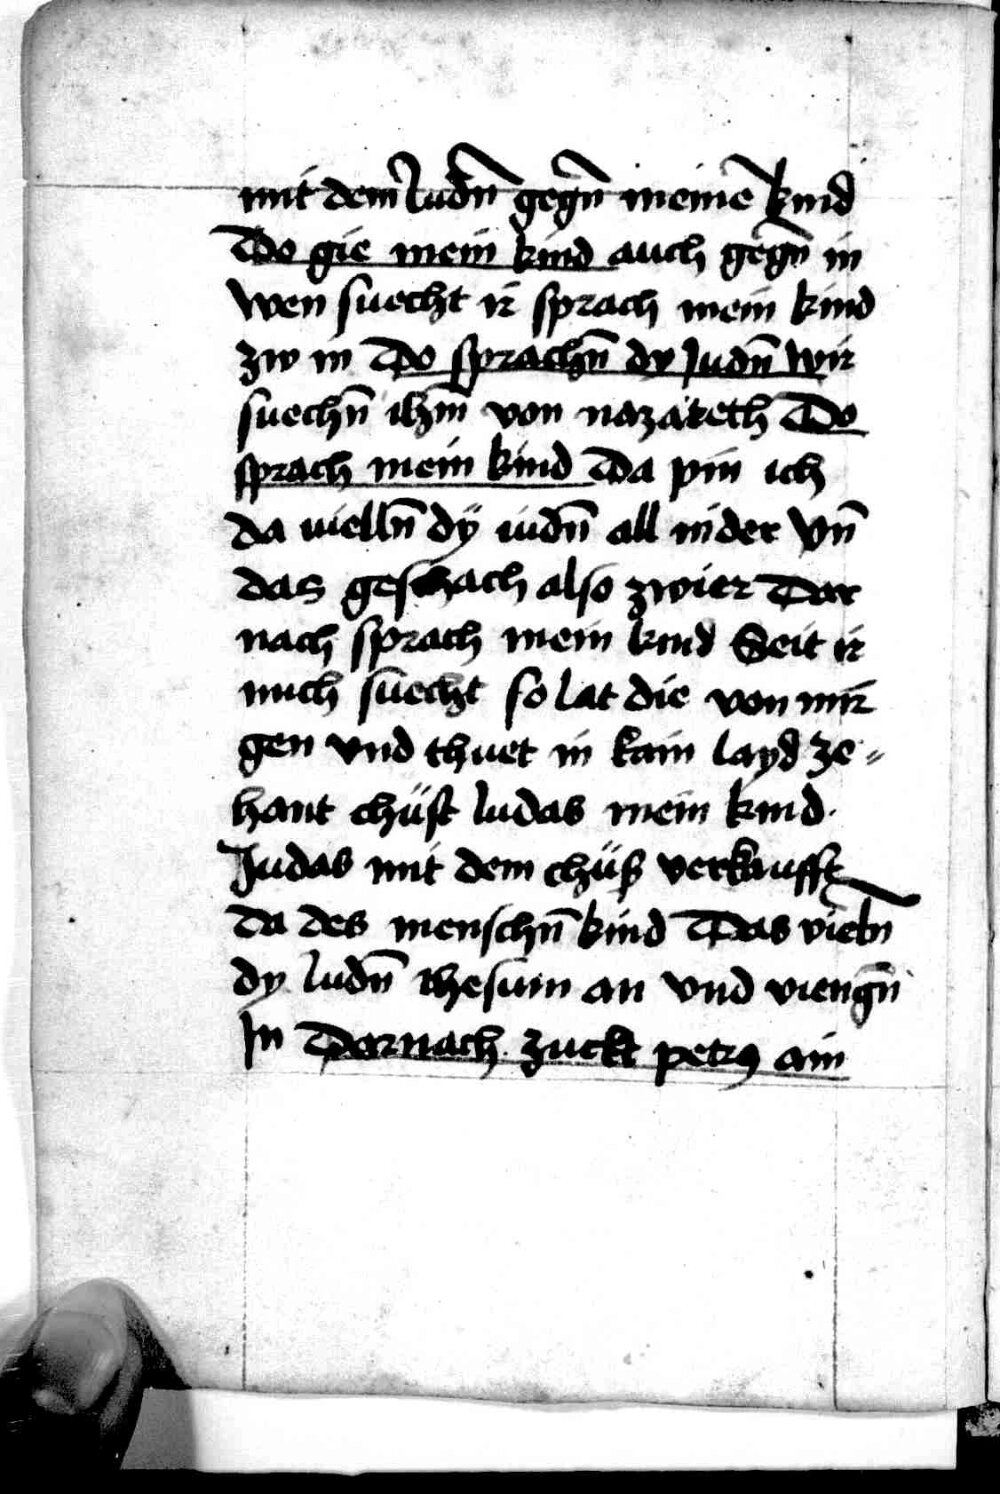 mit dem Judn̄ gegn̄ meinē kind
Do gie mein kind auch gegn̄ in
wen suecht ir sprach mein kind
zw in Do sprachn̄ dy Judn̄ wir
suechn̄ ihm̄ von nazareth Do
sprach mein kind Da pin ich
da vielln̄ dÿ iudn̄ all nider vn̄
das geschach also zwier Dar
nach sprach mein kind Seit ir
mich suecht so lat die von mir
gen vnd thuet in kain layd ze=
hant chüst Judas mein kind.
Judas mit dem chüß verkaufft
da des menschn̄ kind Das vieln̄
dy Judn̄ Ihesum an vnd viengn̄
In Darnach zuckt petrꝰ ain